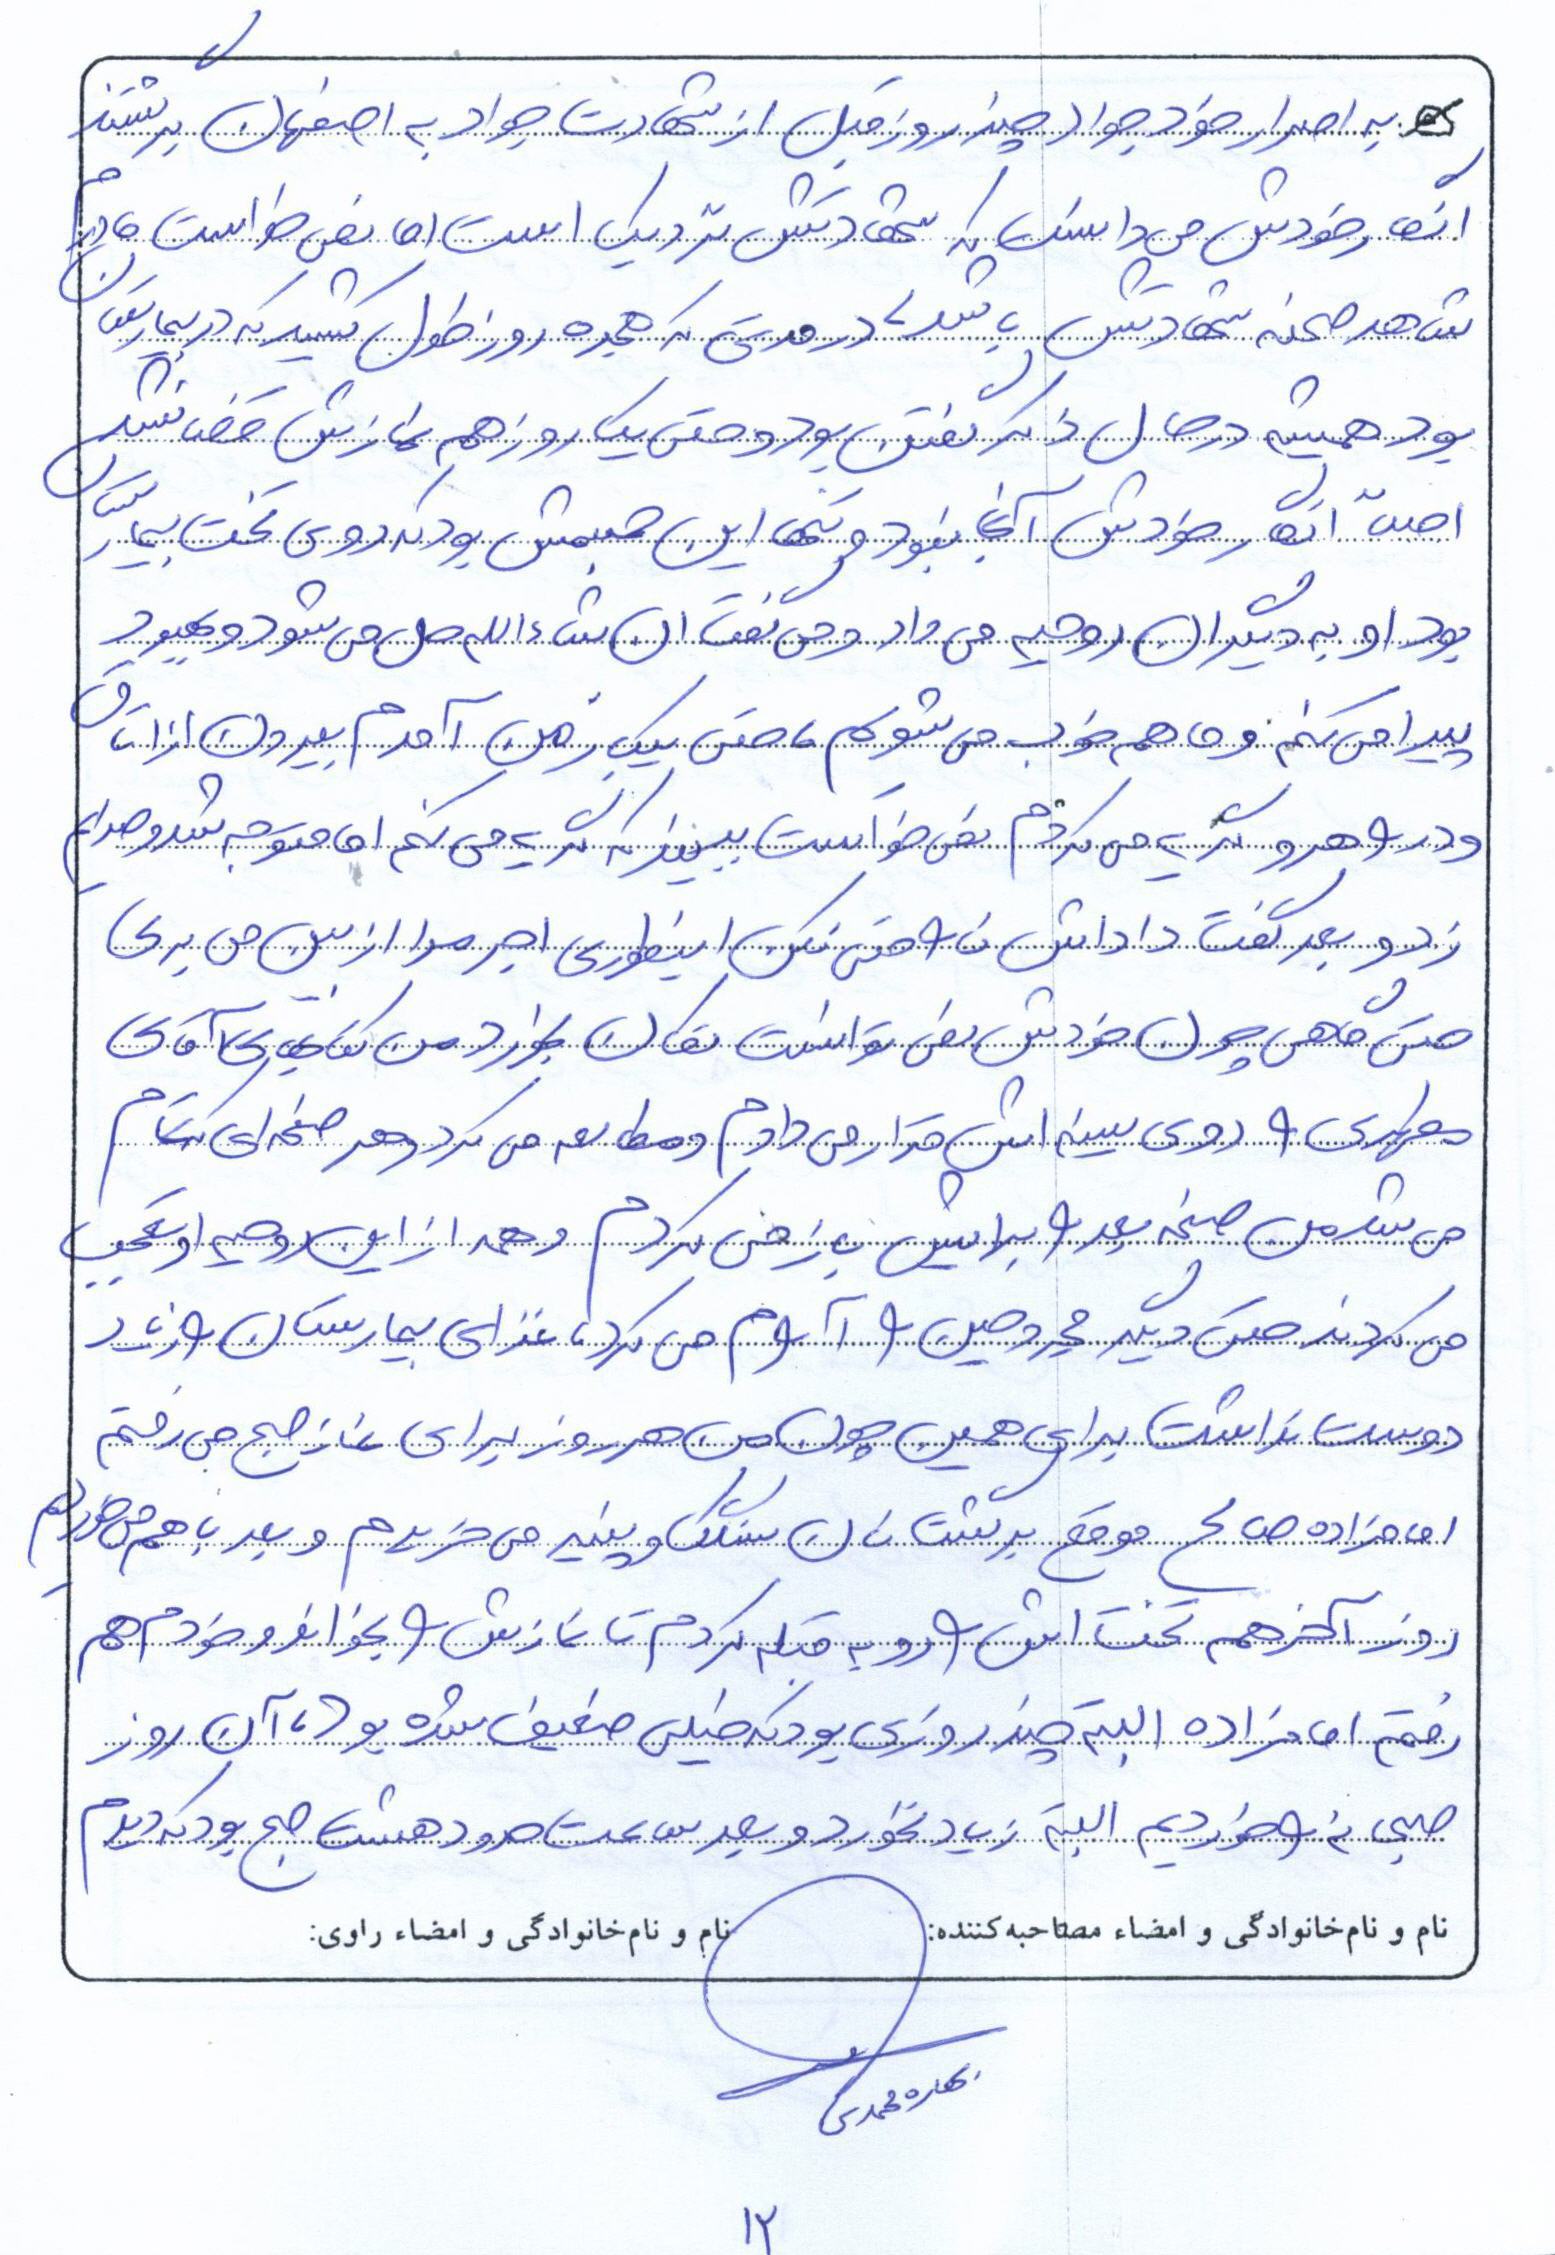 که به اصرار خود جواد چند روز قبل از شهادت جواد به اصفهان برگشتند
انگار خودش می دانست که شهادتش نزدیک است اما نمی خواست مادرم
شاهد صحنه شهادتش باشد، در مدتی که هجده روز طول کشید که در بیمارستان
بود همیشه در حال ذکر گفتن بود و حتی یک روز هم نمازش قضا نشد
اصلاً انگار خودش آنجا نبود و تنها این جسمش بود که روی تخت بیمارستان
بود او به دیگران روحیه می داد و می گفت ان شاءالله حل می شود و بهبود
پیدا می کنم و ما هم خوب می شویم، حتی یکبار من آمدم بیرون از اتاق
و در راهرو گریه می کردم نمی خواست ببیند که گریه می کنم اما متوجه شد و صدایم
زد و بعد گفت داداش ناراحتی نکن اینطوری اجر مرا از بین می بری
حتی گاهی چون خودش نمی توانست تکان بخورد من کتابهای آقای
مطهری را روی سینه اش قرار می دادم و مطالعه می کرد و هر صفحه ای که تمام
می شد من صفحه بعد را برایش باز می کردم و همه از این روحیه او تعجب
می کردند حتی دیگر مجروحین را آرام می کرد، غذای بیمارستان را زیاد
دوست نداشت برای همین چون من هر روز برای نماز صبح می رفتم
امامزاده صالح موقع برگشت نان سنگک و پنیر می خریدم و بعد با هم می خوردیم
روز آخر هم تخت اش را رو به قبله کردم تا نمازش را بخواند و خودم هم
رفتم امامزاده البته چند روزی بود که خیلی ضعیف شده بود، آن روز
صبحانه را خوردیم البته زیاد نخورد و بعد ساعت حدود هشت صبح بود که دیدم
نام و نام‌خانوادگی و امضاء مصاحبه‌کننده: نام و نام‌خانوادگی و امضاء راوی:
بهاره محمدی
۱۲